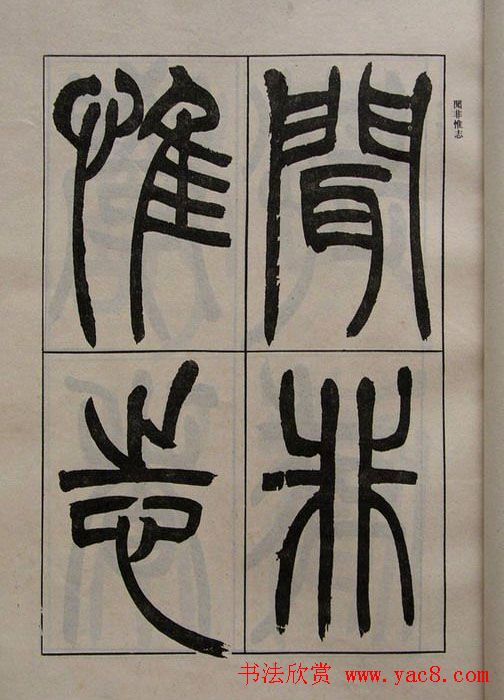 聞非惟志
聞非
惟志
书法欣赏 www.yac8.com